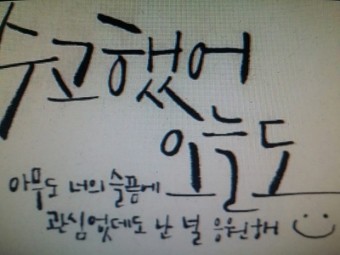 수고했어
오늘도
아무도 너의 슬픔에
관심없데도 난 널 응원해